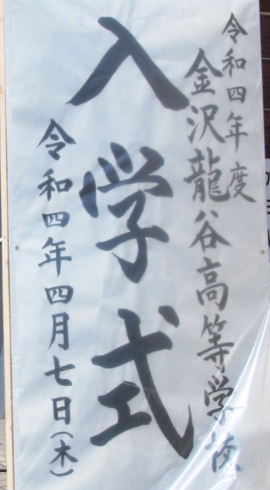 令和四年度
金沢龍谷高等学校
入学式
令和四年四月七日(木)